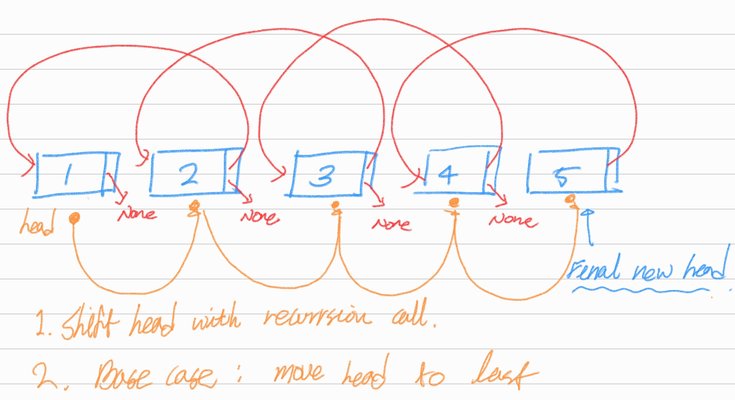 1 2 3 4 5
None None None None
head
Final new head.
1. Shift head with recurrsion call.
2. Base case : move head to last